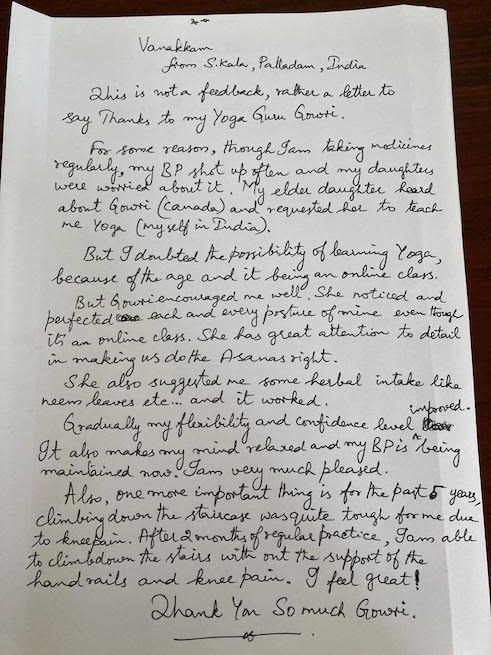 Vanakkam
from S.Kala, Palladam, India
This is not a feedback, rather a letter to
say Thanks to my Yoga Guru Gowri.
For some reason, though I am taking medicines
regularly, my BP shot up often and my daughters
were worried about it. My elder daughter heard
about Gowri (Canada) and requested her to teach
me Yoga (myself in India).
But I doubted the possibility of learning Yoga,
because of the age and it being an online class.
But Gowri encouraged me well. She noticed and
perfected each and every posture of mine even though
it's an online class. She has great attention to detail
in making us do the Asanas right.
She also suggested me some herbal intake like
neem leaves etc... and it worked.
Gradually my flexibility and confidence level improved.
It also makes my mind relaxed and my BP is being
maintained now. I am very much pleased.
Also, one more important thing is for the past 5 years,
climbing down the staircase was quite tough for me due
to knee pain. After 2 months of regular practice, I am able
to climb down the stairs with out the support of the
hand rails and knee pain. I feel great!
Thank You So much Gowri.